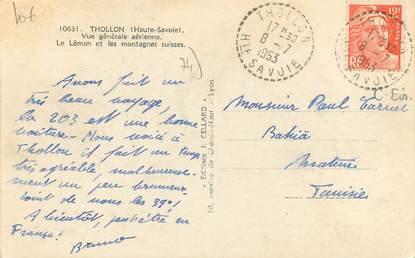 lot
10631. THOLLON (Haute-Savoie).
Vue générale aérienne.
Le Léman et les montagnes suisses.
74
Avons fait un
très beau voyage,
la 203 est une bonne
voiture - Nous voici à
Thollon il fait un temps
très agréable, malheureuse-
ment un peu brumeux
loin de nous les 39°!
A bientôt, peut-être en
France!
Bruno
"Editions J. CELLARD"
THOLLON
17H30
8-7
1953
HTE SAVOIE
THOLLON
8-7
SAVOIE
12F
Monsieur Paul
Bahia
Mateur
Tunisie